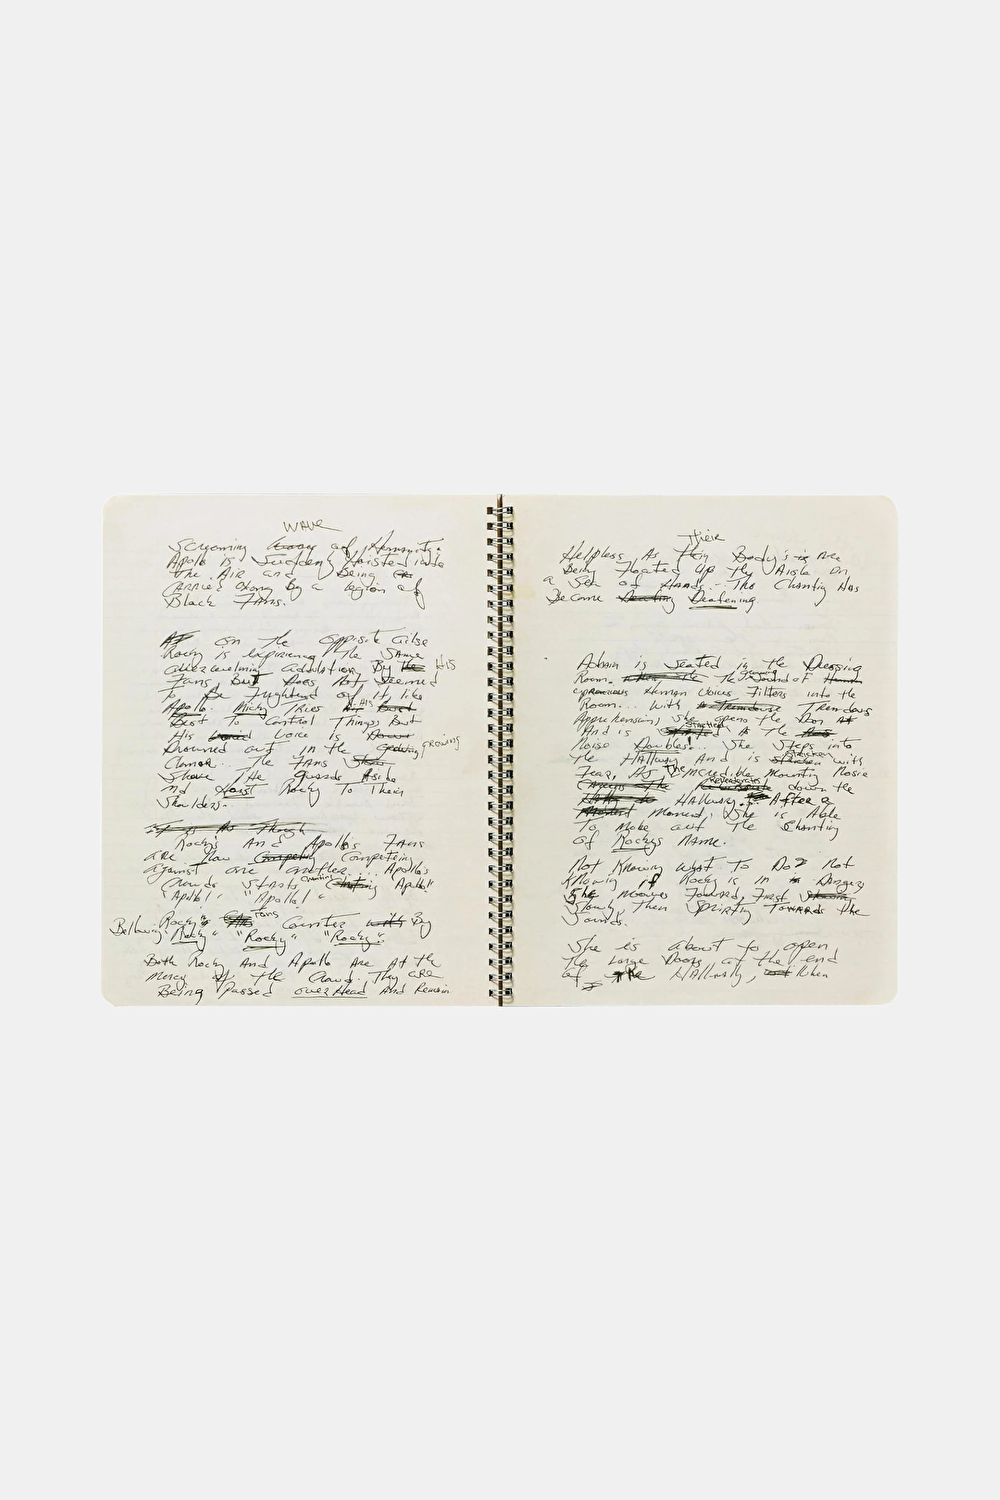 wave
Screaming of Humanity.
Apollo is Suddenly Hoisted into
The Air and Being
Carried along By a legion of
Black Fans.
on the opposite Aisle
Rocky is expiriencing the Same
overwhelming adulation By His
Fans, But Does Not Seemed
To Be Frightend of it like
Apollo. Micky Tries His
Best To Control Things But
His Voice is
Drowned out in the growing
Clamor... The Fans
Shove The guards Aside
nd Hoist Rocky To Their
Shoulders.
Rocky's And Apollo's Fans
are Now Competing
against one another... Apollo's
Crowds Starts Chanting "Apollo"
"Apollo!" "Apollo!"
Rocky's Fans Counter By
Bellowing "Rocky" "Rocky" "Rocky".
Both Rocky And Apollo Are At the
mercy of the Crowd. They are
Being Passed over Head And Remain
Their
Helpless As Body's Are
Being Floated Up the Aisle on
a Sea of Hands... The Chanting Has
Become Deafening.
Adrain is seated in the Dressing
Room. The Sound of
uproarious Human Voices Filters into the
Room... With Tremdous
Apprehension, she opens the Door
And is Startled As the
Noise Doubles... She Steps into
the Hallway And is Stricken with
Fear, As The Incredible Mounting Nosie
Reverberates down the
Hallway. After a
Moment, She is Able
To Make out The Chanting
of Rockys Name.
Not Knowing what To Do? Not
Knowing if Rocky is in Danger
She moves Forward, First
Slowly, Then Sprinting Towards the
Sounds.
She is about to open
The Large Doors at the end
of The Hallway, When